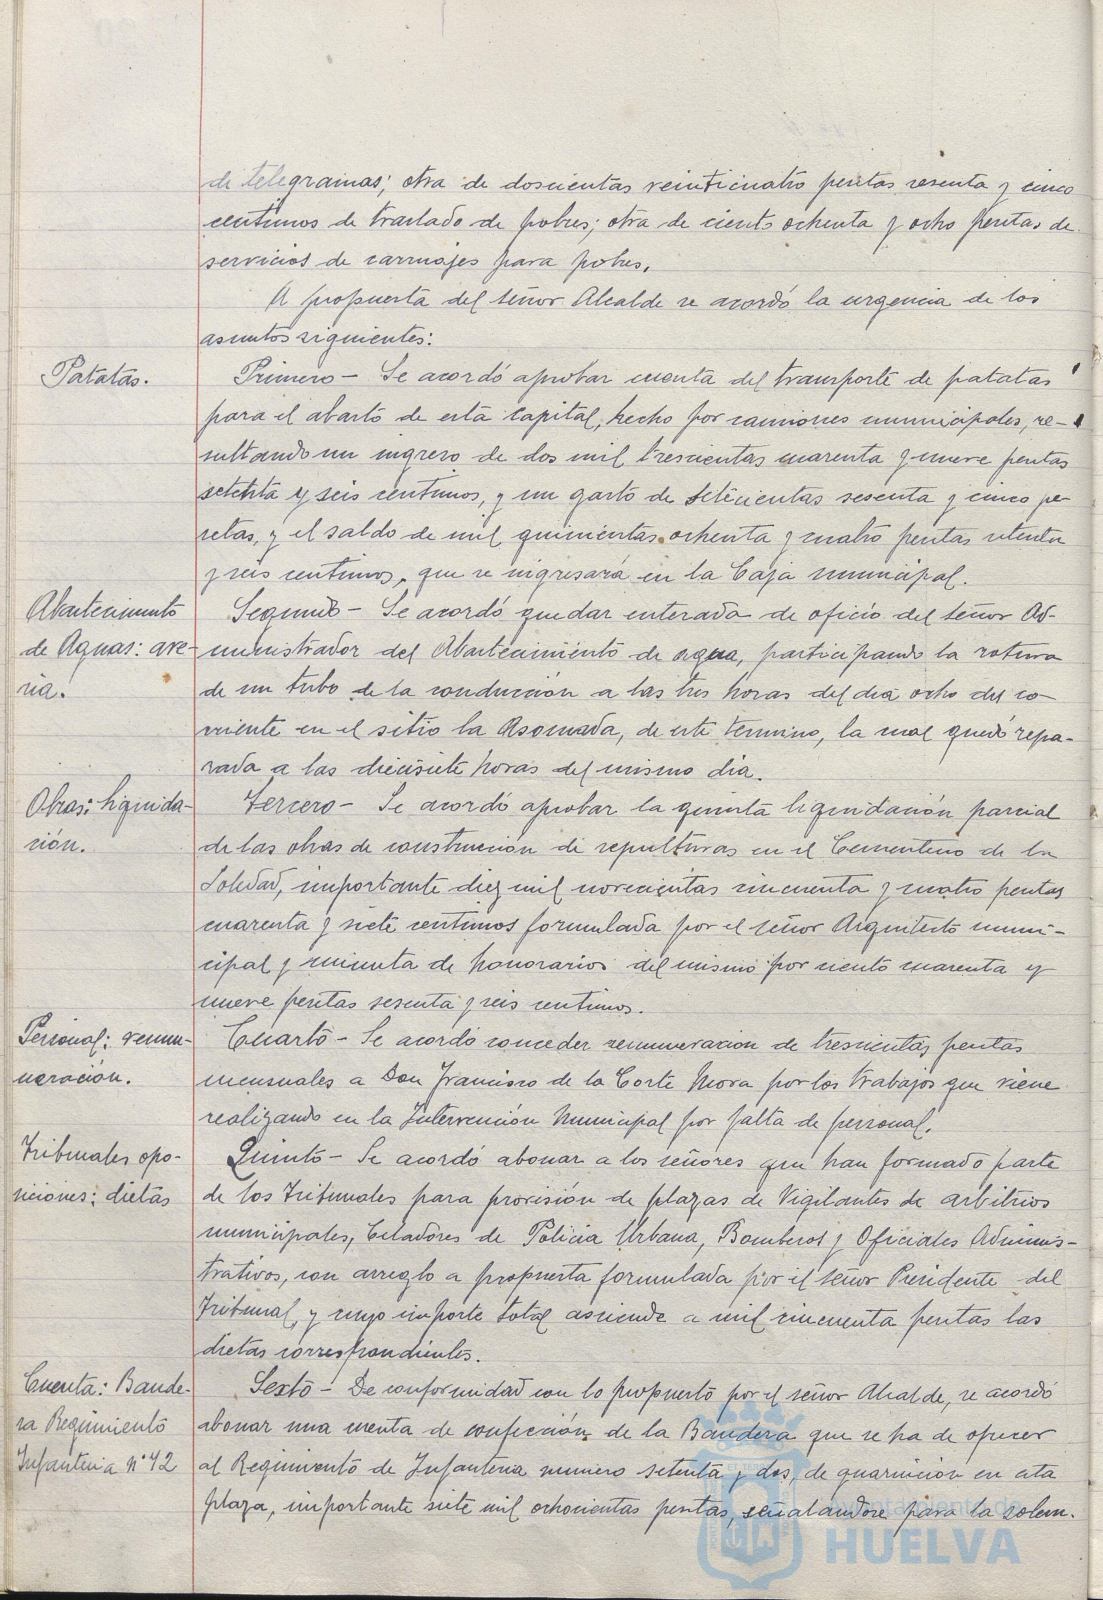 de telegramas; otra de doscientas veinticuatro pesetas sesenta y cinco
centimos de traslado de pobres; otra de ciento ochenta y ocho pesetas de
servicios de carruajes para pobres.
A propuesta del señor Alcalde se acordó la urgencia de los
asuntos siguientes:
Patatas.
Primero - Se acordó aprobar cuenta del transporte de patatas
para el abasto de esta capital, hecho por camiones municipales, re-
sultando un ingreso de dos mil trescientas cuarenta y nueve pesetas
setenta y seis centimos, y un gasto de setecientas sesenta y cinco pe-
setas, y el saldo de mil quinientas ochenta y cuatro pesetas setenta
y seis centimos, que se ingresará en la Caja municipal.
Abastecimiento
de Aguas: ave-
ria.
Segundo - Se acordó quedar enterada de oficio del señor Ad-
ministrador del Abastecimiento de agua, participando la rotura
de un tubo de la conducción a las tres horas del dia ocho del co-
rriente en el sitio la Asomada, de este termino, la cual quedó repa-
rada a las diecisiete horas del mismo dia.
Obras: liquida-
ción.
Tercero - Se acordó aprobar la quinta liquidación parcial
de las obras de construcción de sepulturas en el Cementerio de la
Soledad, importante diez mil novecientas cincuenta y cuatro pesetas
cuarenta y siete centimos formulada por el señor Arquitecto muni-
cipal y minuta de honorarios del mismo por ciento cuarenta y
nueve pesetas sesenta y seis centimos.
Personal: remu-
neración.
Cuarto - Se acordó conceder remuneracion de trescientas pesetas
mensuales a Don Francisco de la Corte Mora por los trabajos que viene
realizando en la Intervención Municipal por falta de personal.
Tribunales opo-
siciones: dietas
Quinto - Se acordó abonar a los señores que han formado parte
de los Tribunales para provisión de plazas de Vigilantes de arbitrios
municipales, Celadores de Policia Urbana, Bomberos y Oficiales Adminis-
trativos, con arreglo a propuesta formulada por el señor Presidente del
Tribunal, y cuyo importe total asciende a mil cincuenta pesetas las
dietas correspondientes.
Cuenta: Bande-
ra Regimiento
Infanteria nº 72
Sexto - De conformidad con lo propuesto por el señor Alcalde, se acordó
abonar una cuenta de confección de la Bandera que se ha de ofrecer
al Regimiento de Infanteria numero setenta y dos, de guarnicion en esta
plaza, importante siete mil ochocientas pesetas, señalandose para la solem-
Ayuntamiento de
HUELVA